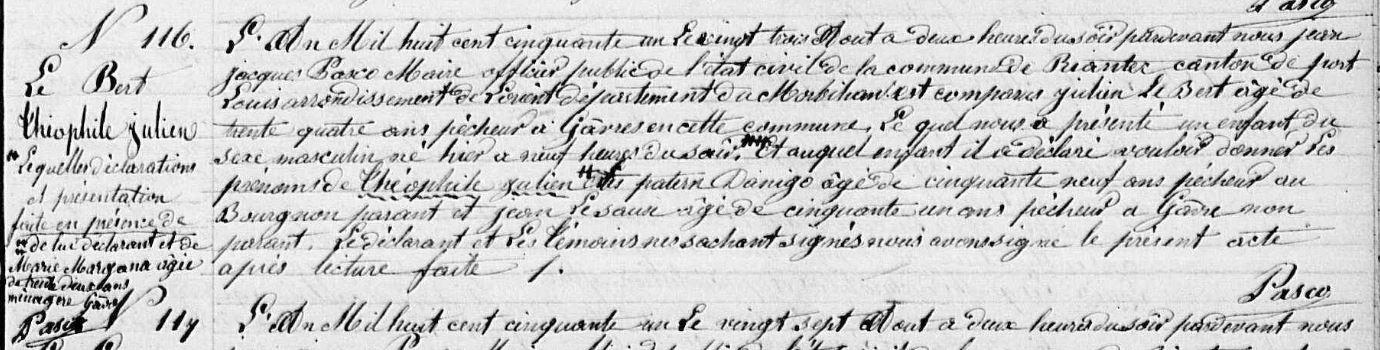 Pasco
N 116.
Le Bert
Théophile julien
" Lequelles déclarations
et présentation
faite en présence de
"" de lui déclarant et de
Marie Margana agée
de trente deux ans
ménagere Gâvre
Pasco
L'An Mil huit cent cinquante un Le vingt trois Aout a deux heures du soir pardevant nous jean
jacques Pasco Maire officier public de l'état civil de la commune de Riantec canton de port
Louis arrondissement de Lorient département du Morbihan est comparu julien Le Bert âgé de
trente quatre ans pêcheur à Gâvres en cette commune. Le quel nous a présenté un enfant du
sexe masculin né hier a neuf heures du soir, "" Et auquel enfant il a déclaré vouloir donner Les
prénoms de Théophile julien " patern Danigo âgé de cinquante neuf ans pêcheur au
Bourgnon parant et jean Le saux âgé de cinquante un ans pêcheur a Gâvre non
parant. Le déclarant et Les témoins ne sachant signés nous avons signé le présent acte
après lecture faite /.
Pasco
N 117
L'An Mil huit cent cinquante un Le vingt sept Aout a deux heures du soir pardevant nous